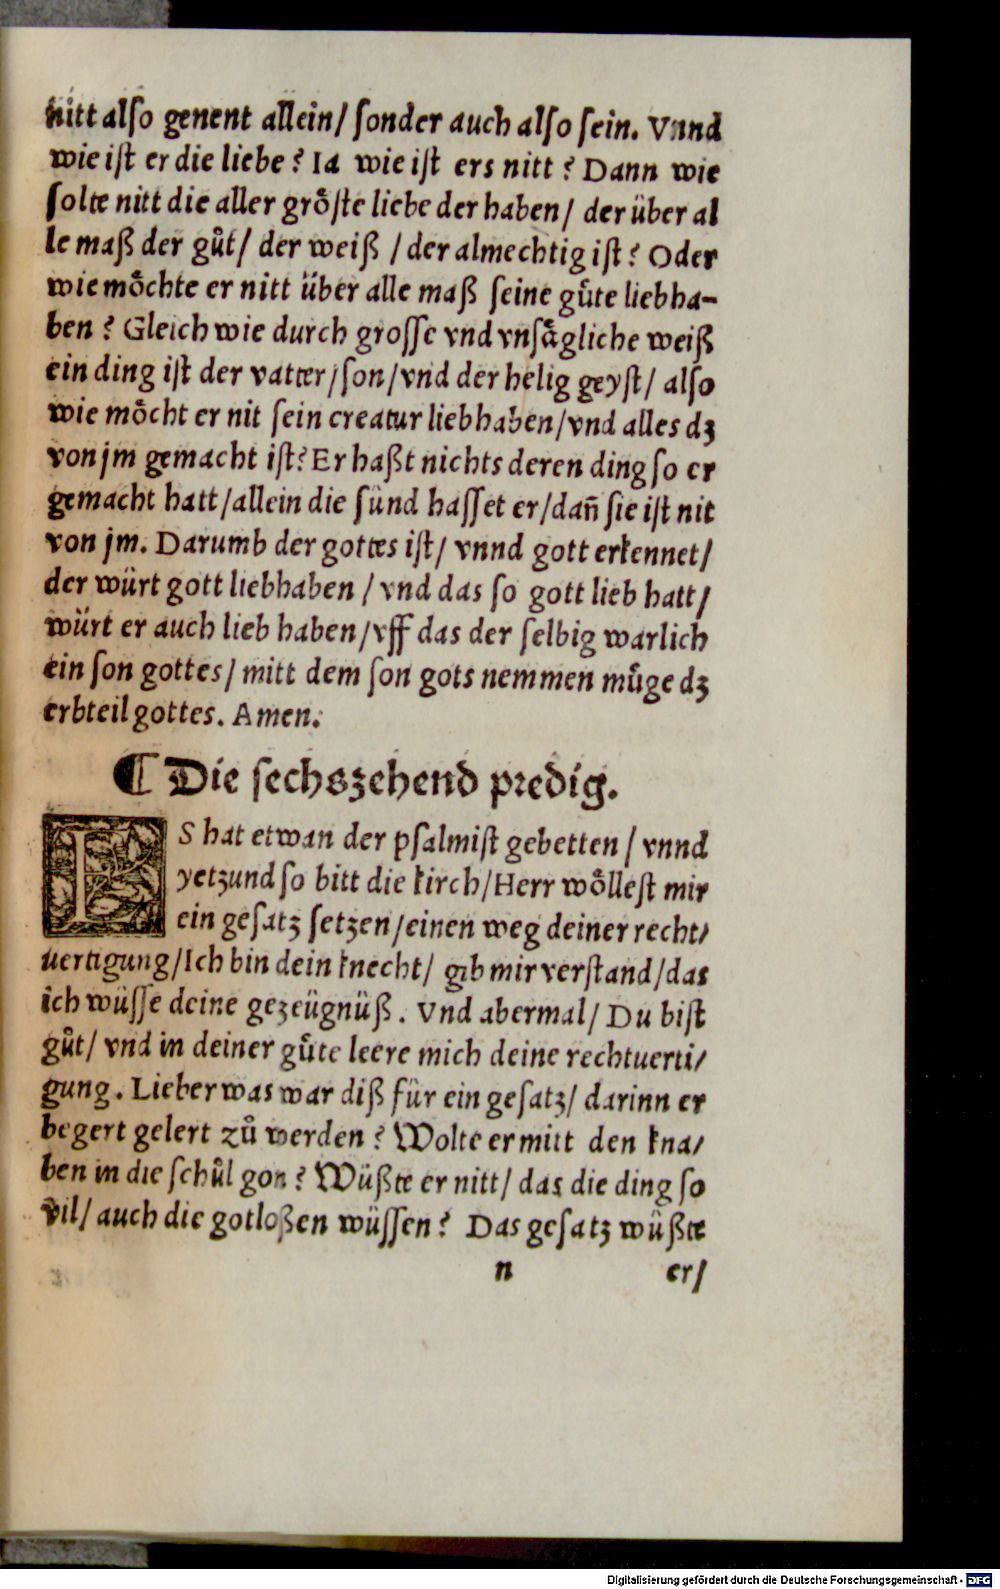 nitt also genent allein/ sonder auch also sein. Vnnd
wie ist er die liebe? Ia wie ist ers nitt? Dann wie
solte nitt die aller groͤste liebe der haben/ der über al
le maß der guͦt/ der weiß / der almechtig ist? Oder
wie moͤchte er nitt über alle maß seine guͤte liebha-
ben? Gleich wie durch grosse vnd vnsaͤgliche weiß
ein ding ist der vatter/son/vnd der helig geyst/ also
wie moͤcht er nit sein creatur liebhaben/vnd alles dʒ
von jm gemacht ist? Er haßt nichts deren ding so er
gemacht hatt/allein die sünd hasset er/dañ sie ist nit
von jm. Darumb der gottes ist/ vnnd gott erkennet/
der würt gott liebhaben / vnd das so gott lieb hatt/
würt er auch lieb haben/vff das der selbig warlich
ein son gottes/ mitt dem son gots nemmen muͤge dʒ
erbteil gottes. Amen.
¶ Die sechszehend predig.
ES hat etwan der psalmist gebetten / vnnd
yetzund so bitt die kirch/Herr woͤllest mir
ein gesatz setzen/einen weg deiner recht/
uertigung/Ich bin dein knecht/ gib mir verstand/das
ich wüsse deine gezeügnüß. Vnd abermal/ Du bist
guͦt/ vnd in deiner guͤte leere mich deine rechtuerti/
gung. Lieber was war diß für ein gesatz/ darinn er
begert gelert zuͦ werden? Wolte er mitt den kna/
ben in die schuͦl gon? Wüßte er nitt/ das die ding so
vil/ auch die gotloßen wüssen? Das gesatz wüßte
n er/
Digitalisierung gefördert durch die Deutsche Forschungsgemeinschaft - DFG